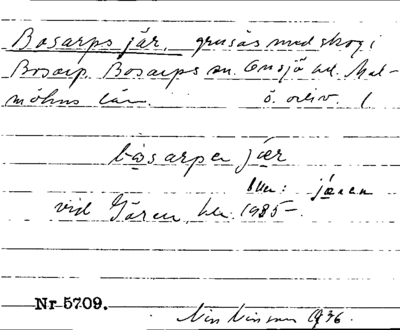 Bosarps jär, grusås med skog i
Bosarp. Bosarps sn. Onsjö hd. Mal-
möhns län. ö. och v. (
båsarpa jær
jæren
vid Jären, hr. 1985-
Nr 5709.
Nils Nilsson 1936.